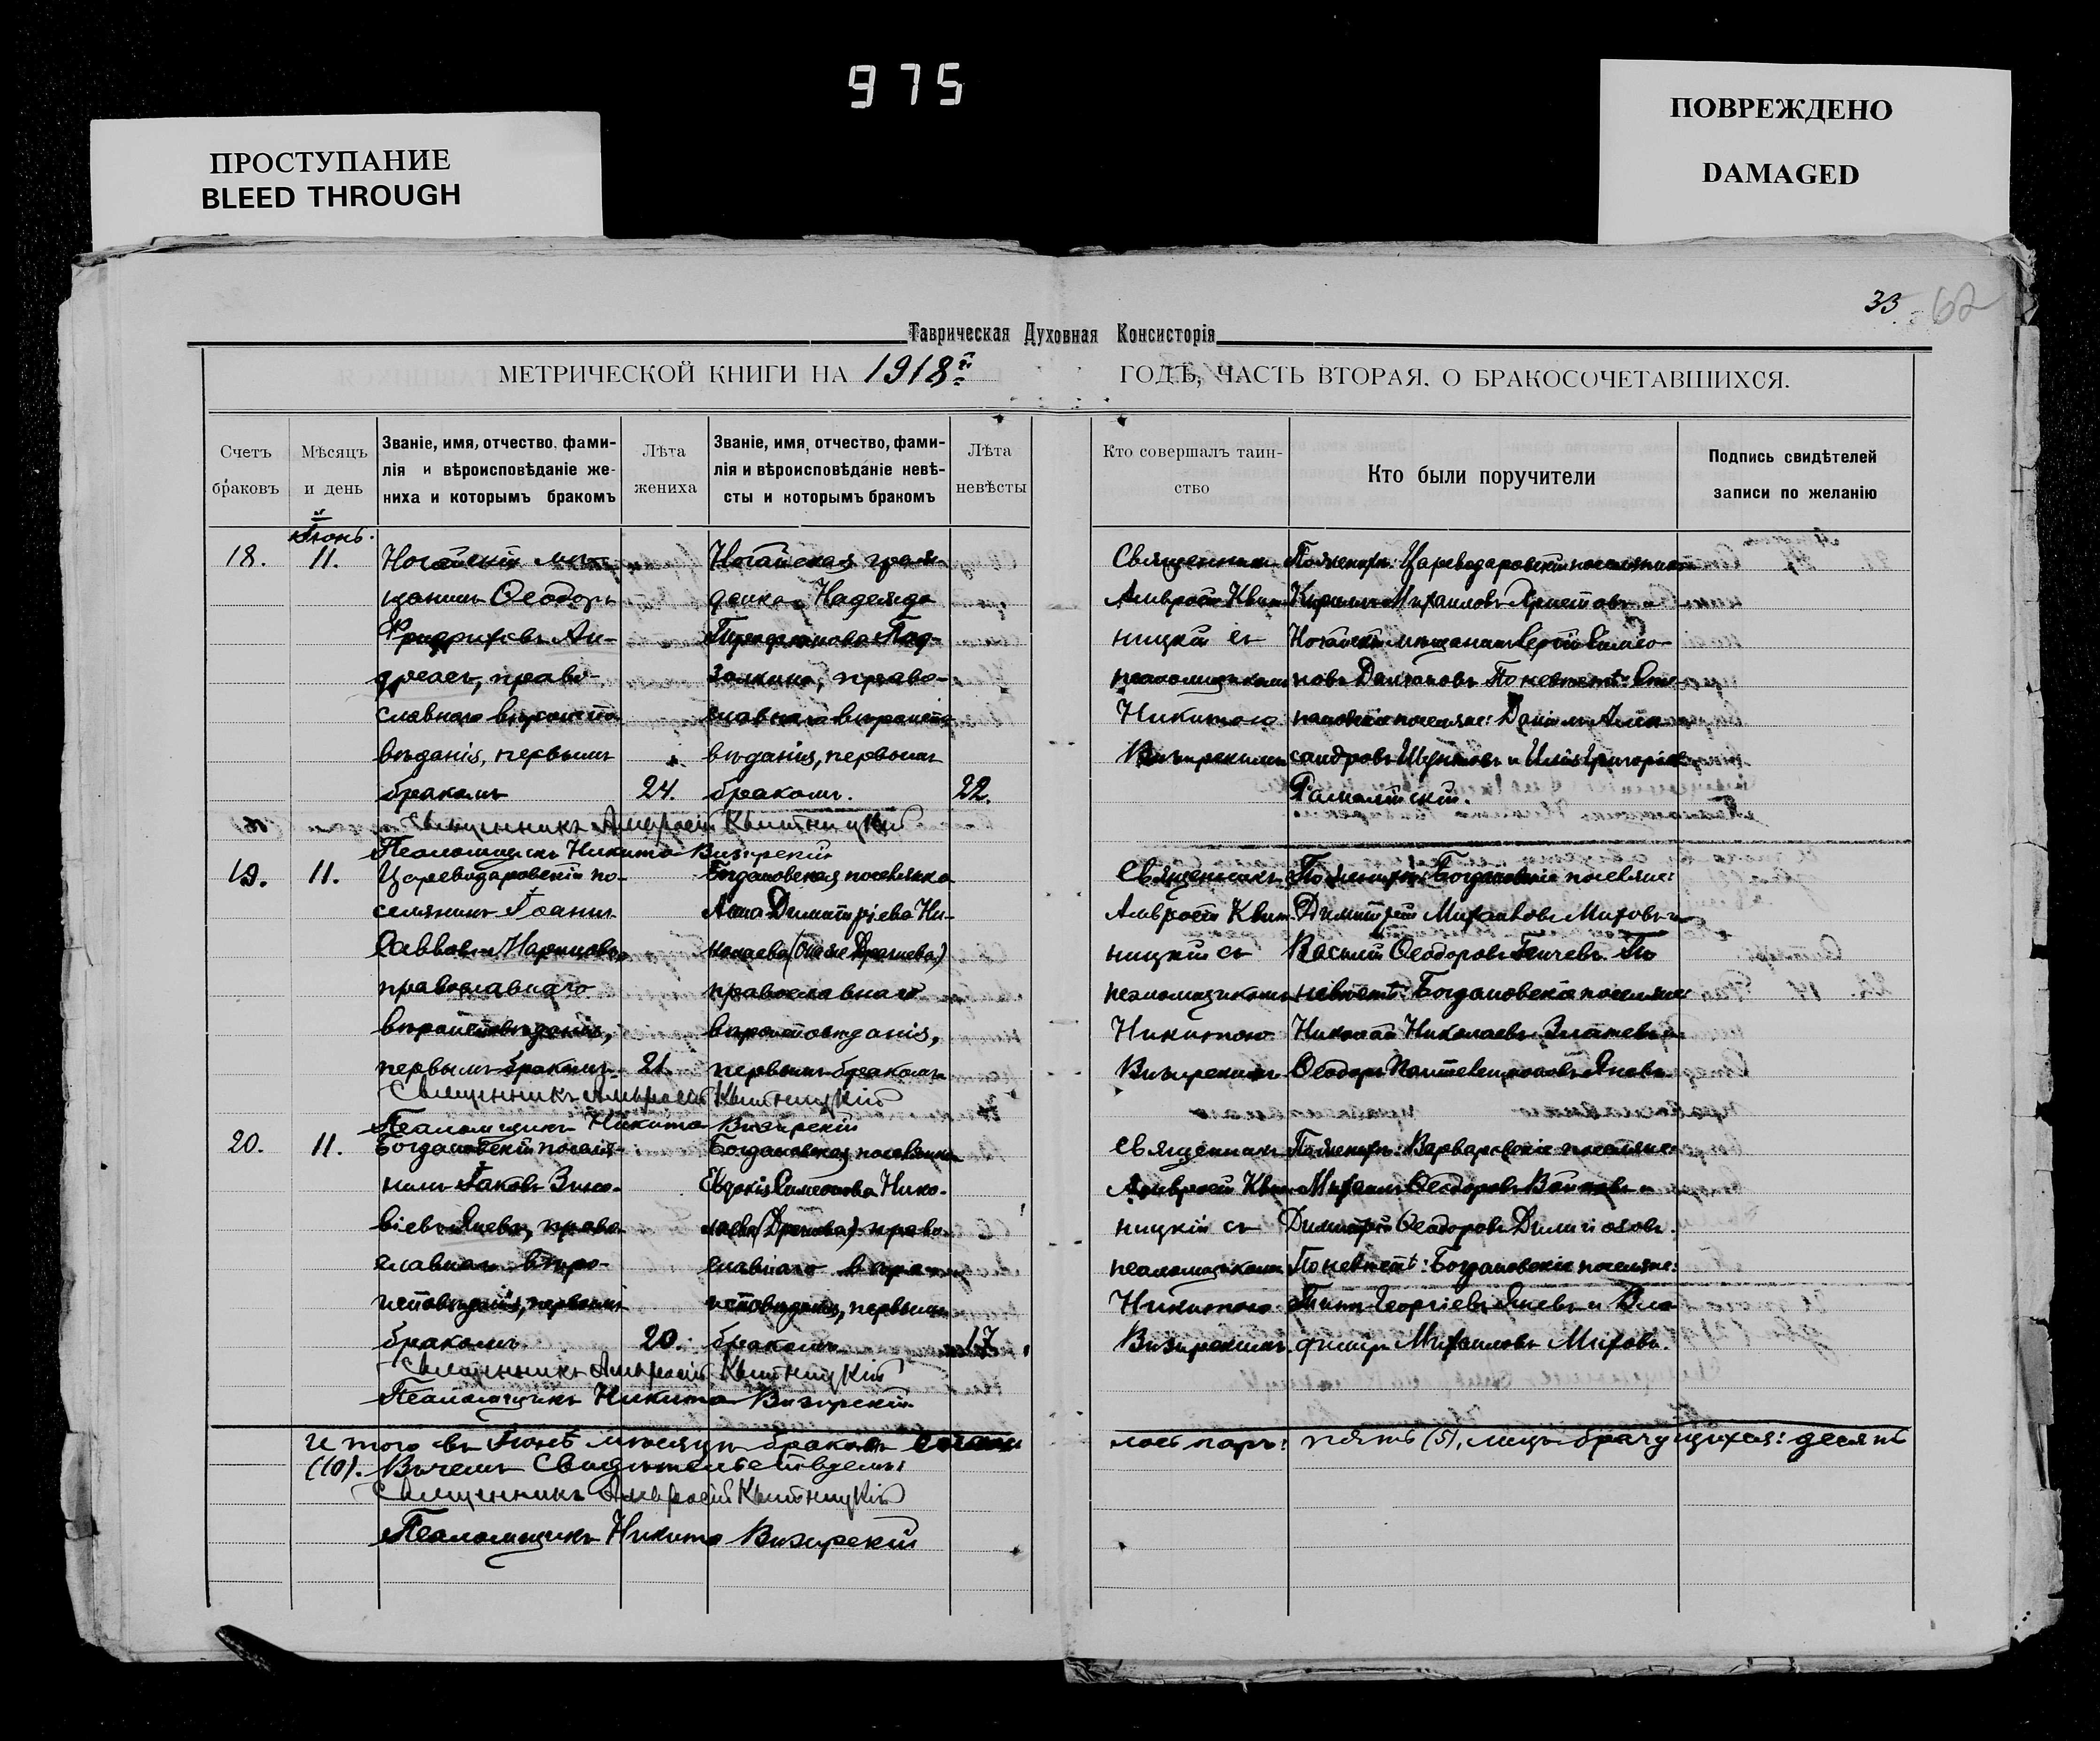 975
ПРОСТУПАНИЕ
BLEED THROUGH
ПОВРЕЖДЕНО
DAMAGED
33
62
Таврическая Духовная Консисторія
МЕТРИЧЕСКОЙ КНИГИ НА 1918й ГОДЪ, ЧАСТЬ ВТОРАЯ, О БРАКОСОЧЕТАВШИХСЯ.
Счетъ
браковъ
Мѣсяцъ
и день
Званіе, имя, отчество, фами-
лія и вѣроисповѣданіе же-
ниха и которымъ бракомъ
Лѣта
жениха
Званіе, имя, отчество, фами-
лія и вѣроисповѣданіе невѣ-
сты и которымъ бракомъ
Лѣта
невѣсты
Кто совершалъ таин-
ство
Кто были поручители
Подпись свидѣтелей
записи по желанію
Іюнь
18.
11.
Ногайскій мѣ-
щанинъ Ѳеодоръ
Фридриховъ Ан-
дреасъ, право-
славнаго вѣроиспо-
вѣданія, первымъ
бракомъ
24.
Ногайская граж-
данка Надежда
право-
славнаго вѣроиспо-
вѣданія, первымъ
бракомъ.
22.
Священникъ
Амвросій Квит-
ницкій съ
псаломщикомъ
Никитою
Визирскимъ
По женихѣ: Цареводаровскій поселянинъ
Кириллъ Михаиловъ Христовъ и
Ногайскій мѣщанинъ Сергій Симео-
новъ По невѣстѣ:
поселяне: Даніилъ Алек-
сандровъ и Илія Григорьевъ
Священникъ Амвросій Квитницкій
Псаломщикъ Никита Визирскій
19.
11.
Цареводаровскій по-
селянинъ Іоаннъ
Саввовъ
православнаго
вѣроисповѣданія,
первымъ бракомъ
21.
Богдановская поселянка
Анна Димитріева Ни-
колаева
православнаго
вѣроисповѣданія,
первымъ бракомъ
Священникъ
Амвросій Квит-
ницкій съ
псаломщикомъ
Никитою
Визирскимъ
По женихѣ: Богдановскіе поселяне:
Димитрій Михаиловъ Миховъ и
Василій Ѳеодоровъ По
невѣстѣ: Богдановскіе поселяне:
Николай Николаевъ Златевъ и
Ѳеодоръ Пантелеимоновъ Яновъ
Священникъ Амвросій Квитницкій
Псаломщикъ Никита Визирскій
20.
11.
Богдановскій поселя-
нинъ Іаковъ Зино-
віевъ Яневъ, право-
славнаго вѣро-
исповѣданія, первымъ
бракомъ
20.
Богдановская поселянка
Евдокія Симеонова Нико-
лаева право-
славнаго вѣро-
исповѣданія, первымъ
бракомъ
17
Священникъ
Амвросій Квит-
ницкій съ
псаломщикомъ
Никитою
Визирскимъ
По женихѣ: Варваровскіе поселяне:
Михаилъ Ѳеодоровъ Войковъ и
Димитрій Ѳеодоровъ
По невѣстѣ: Богдановскіе поселяне:
Георгіевъ Яневъ и Вла-
диміръ Михаиловъ Миховъ.
Священникъ Амвросій Квитницкій
Псаломщикъ Никита Визирскій
Итого въ Іюнѣ мѣсяцѣ бракомъ
паръ: пять (5), лицъ брачущихся: десять
(10). Въ чемъ свидѣтельствуемъ:
Священникъ Амвросій Квитницкій
Псаломщикъ Никита Визирскій